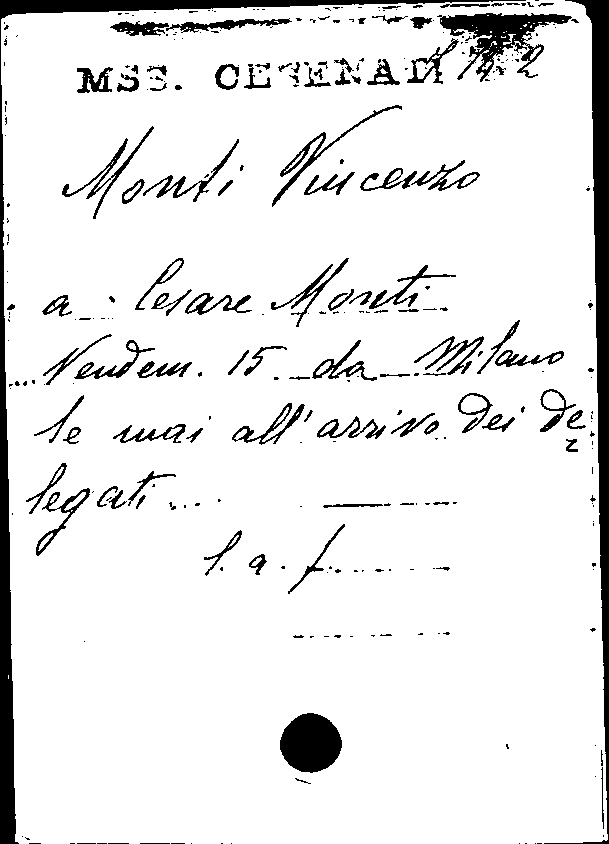 MSS. CESENATI
Monti Vincenzo
a Cesare Monti
Vendem. 15. da Milano
Se mai all'arrivo dei de
legati ...
l. a. f.